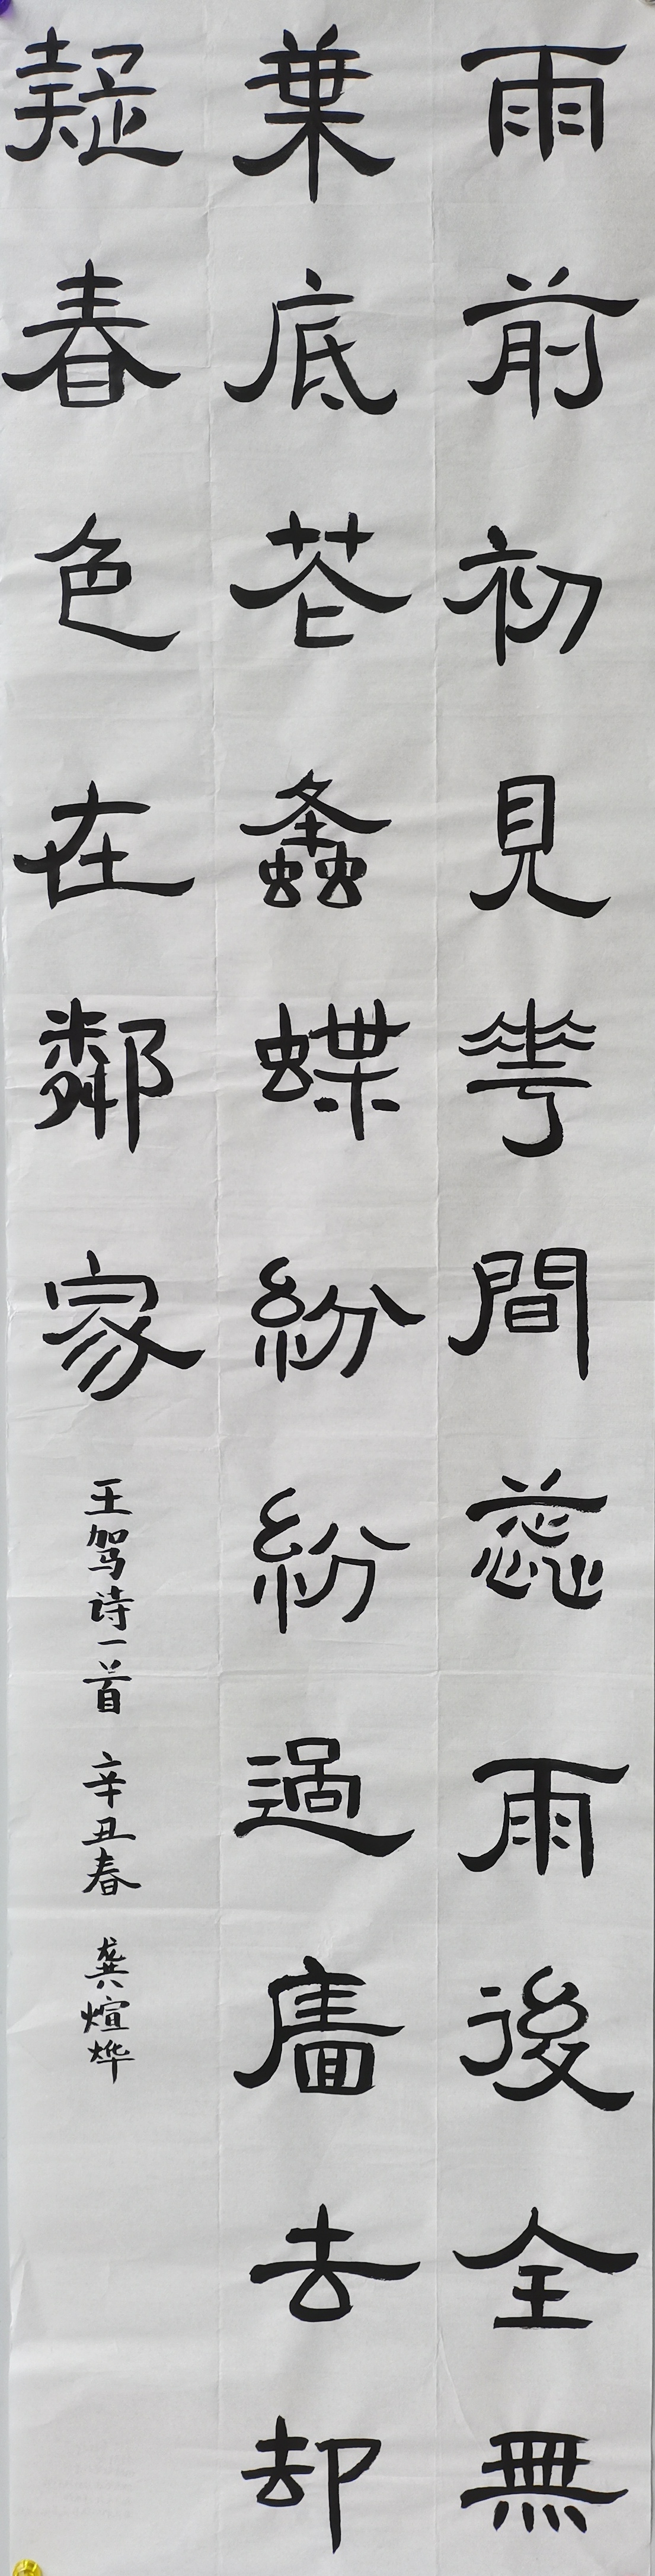 雨前初見華間蕊雨後全無
葉底花蠭蝶紛紛過廧去却
疑春色在鄰家
王驾诗一首 辛丑春 龚煊烨